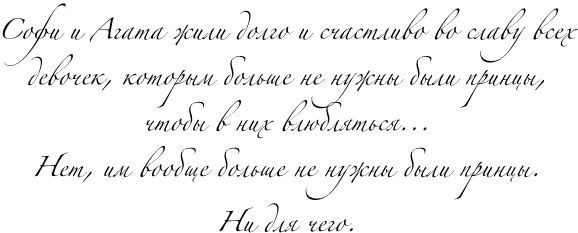 Софи и Агата жили долго и счастливо во славу всех
девочек, которым больше не нужны были принцы,
чтобы в них влюбляться...
Нет, им вообще больше не нужны были принцы.
Ни для чего.